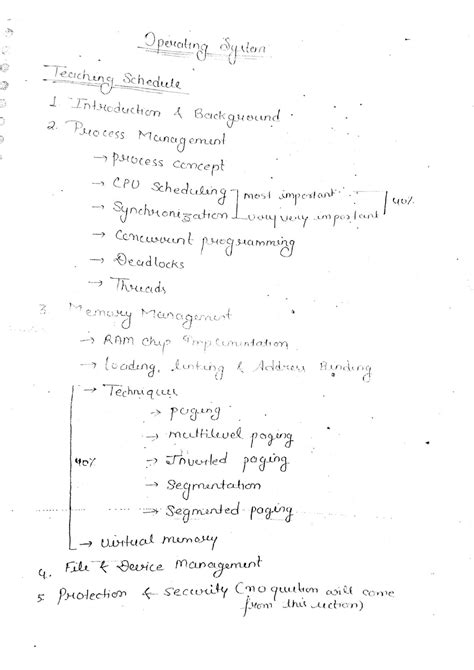 Operating System
Teaching Schedule
1. Introduction & Background
2. Process Management
→ process concept
→ CPU Scheduling most important
→ Synchronization very very important 40%
→ Concurrent programming
→ Deadlocks
→ Threads
3. Memory Management
→ RAM Chip Implementation
→ Loading, linking & Address Binding
→ Techniques
→ paging
→ multilevel paging
40% → Inverted paging
→ Segmentation
→ Segmented paging
→ virtual memory
4. File & Device Management
5. Protection & security (no question will come
from this section)